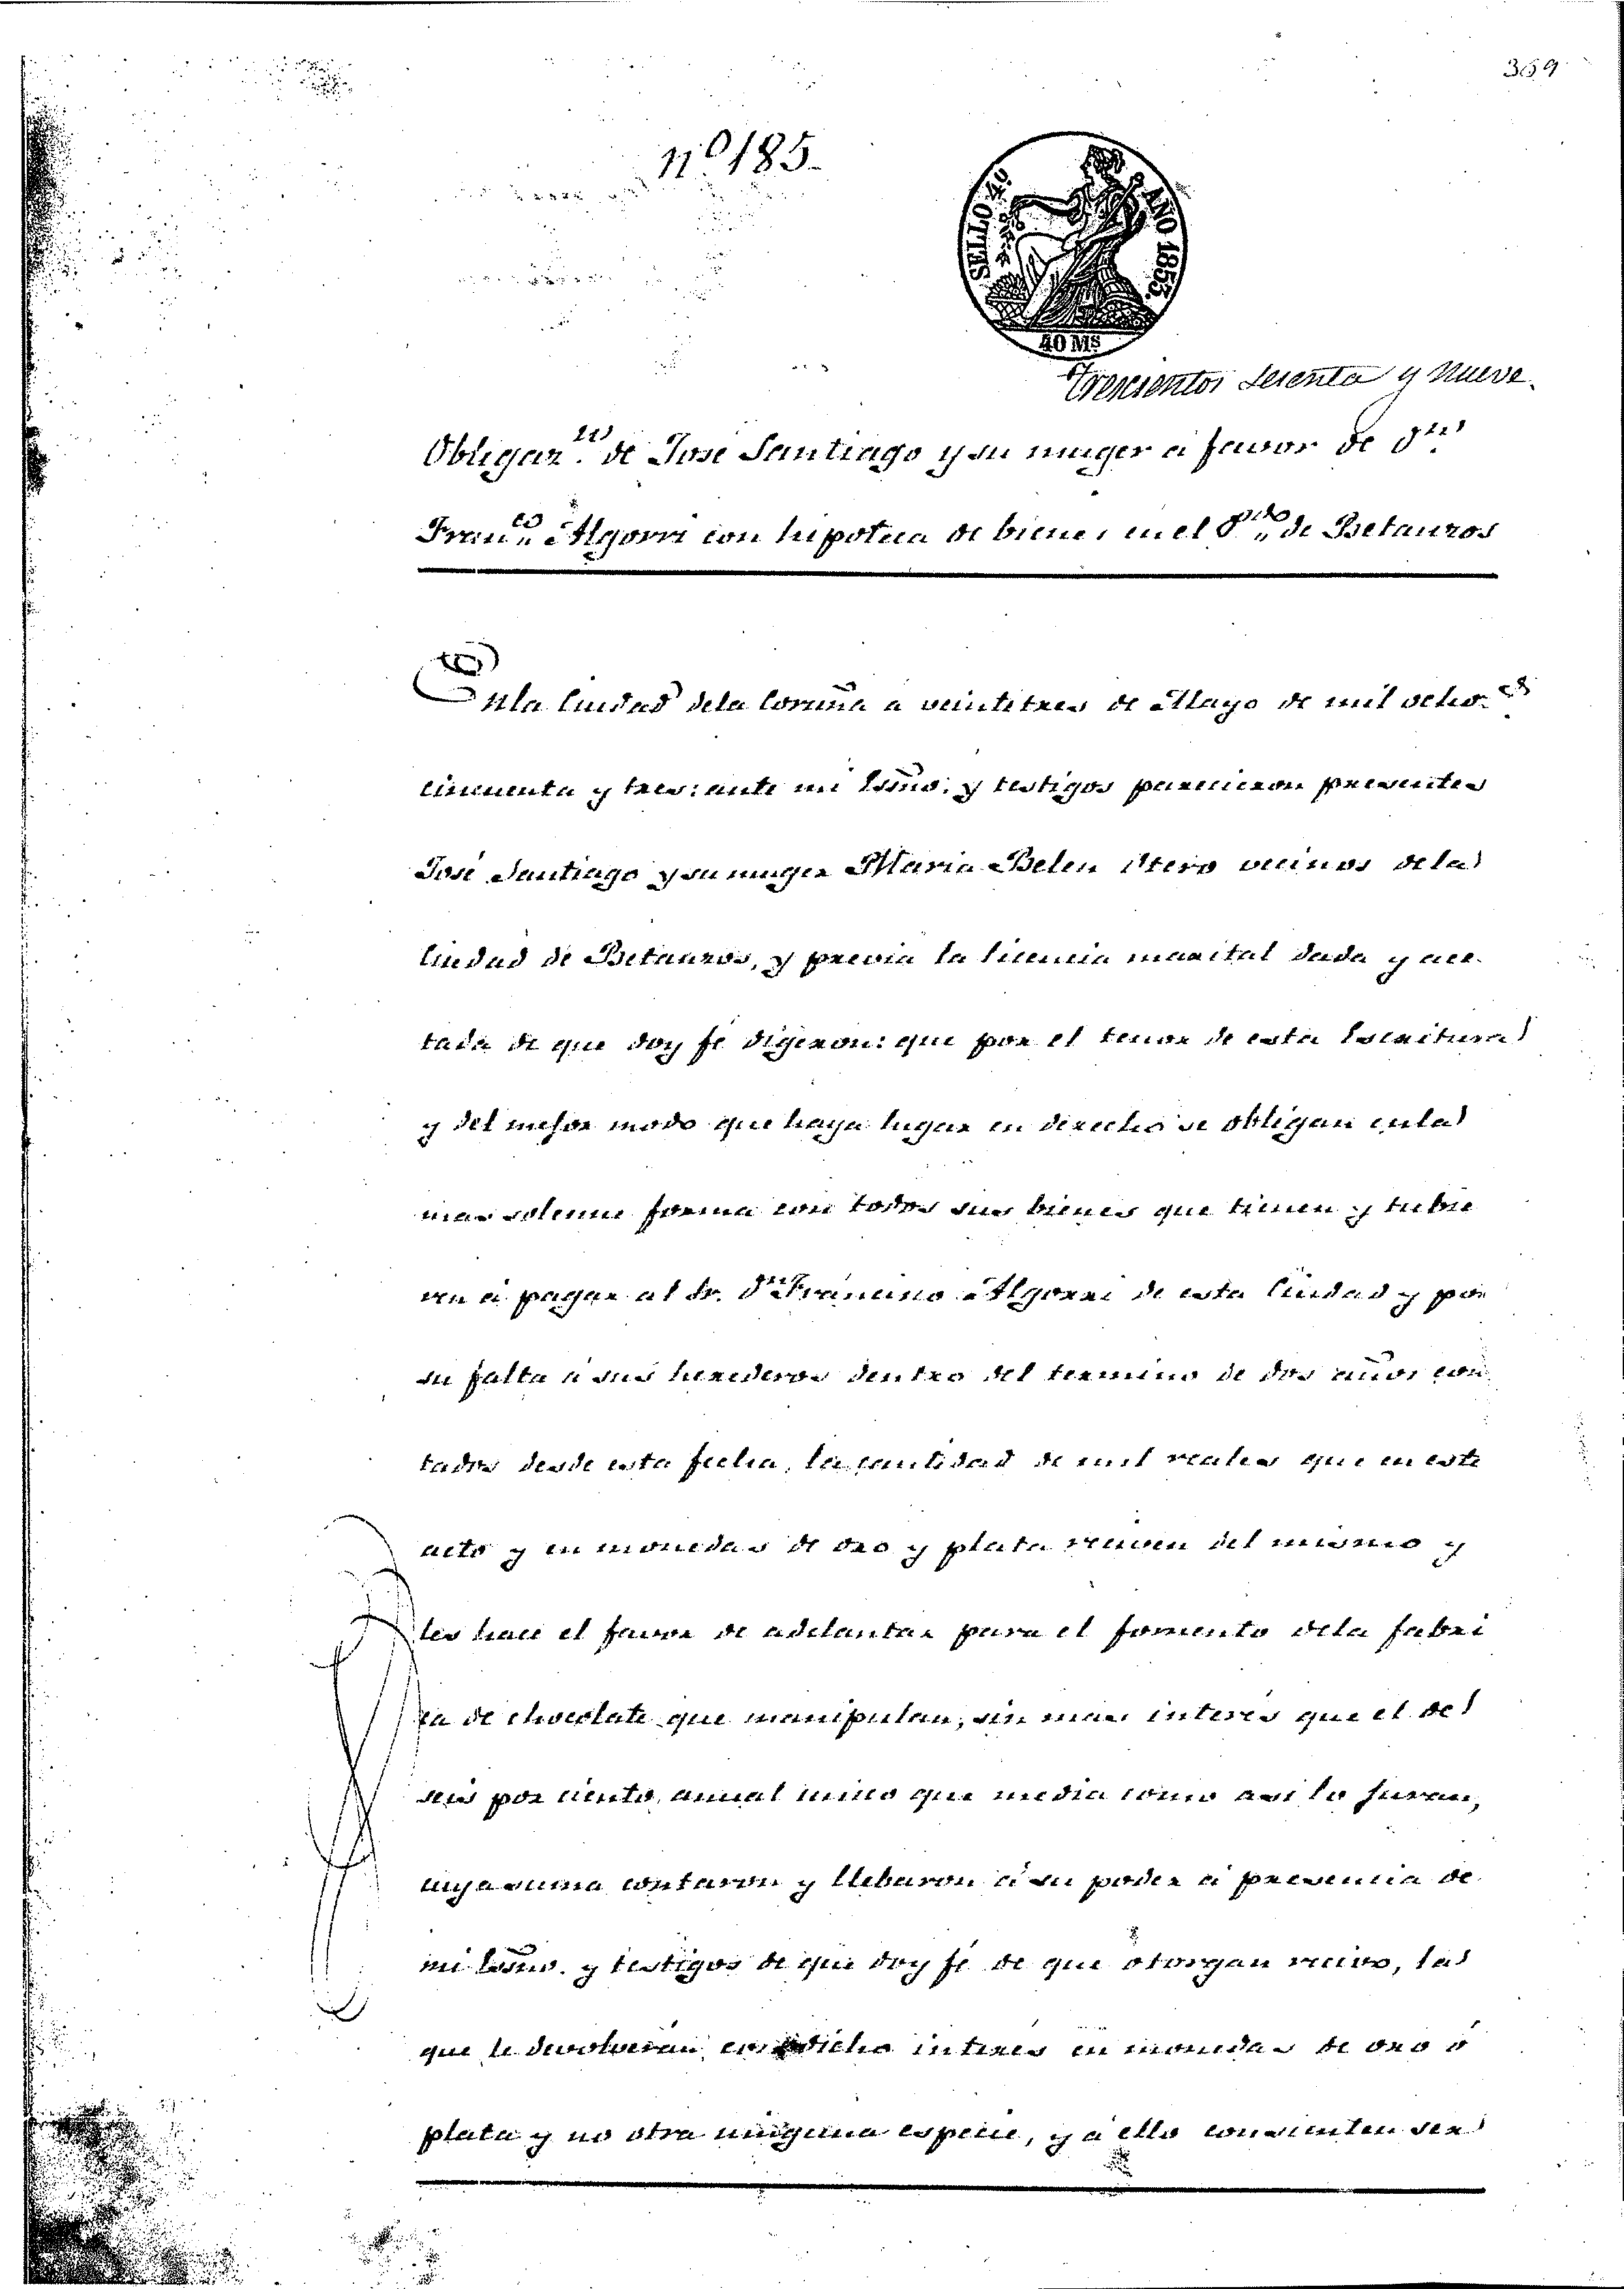 369
nº 185.
SELLO 4º. AÑO 1853.
40 Ms
Trescientos sesenta y nueve.
Obligaz.n de José Santiago y su muger á favor de D.n
Fran.co Algorri con hipoteca de bienes en el P.tdo de Betanzos
En la Ciudad dela Coruña a veintitres de Mayo de mil ocho.s
cincuenta y tres: ante mi Esño. y testigos parecieron presentes
José Santiago y su muger Maria Belen Otero vecinos dela
Ciudad de Betanzos, y previa la licencia marital dada y ace-
tada de que doy fé digeron: que por el tenor de esta Escritura
y del mejor modo que haya lugar en derecho se obligan enla
mas solemne forma con todos sus bienes que tienen y tubie
ren á pagar al Sr. D.n Francisco Algorri de esta Ciudad y por
su falta á sus herederos dentro del termino de dos años con
tados desde esta fecha, la cantidad de mil reales que en este
acto y en monedas de oro y plata reciven del mismo y
les hace el favor de adelantar para el fomento dela fabri
ca de chocolate que manipulan, sin mas interés que el del
seis por ciento annal unico que media como asi lo juran,
cuya suma contaron y llebaron á su poder á presencia de
mi Esño. y testigos de que doy fé de que otorgan recivo, la
que le devolverán con dicho interés en monedas de oro ó
plata y no otra ninguna especie, y á ello consienten ser